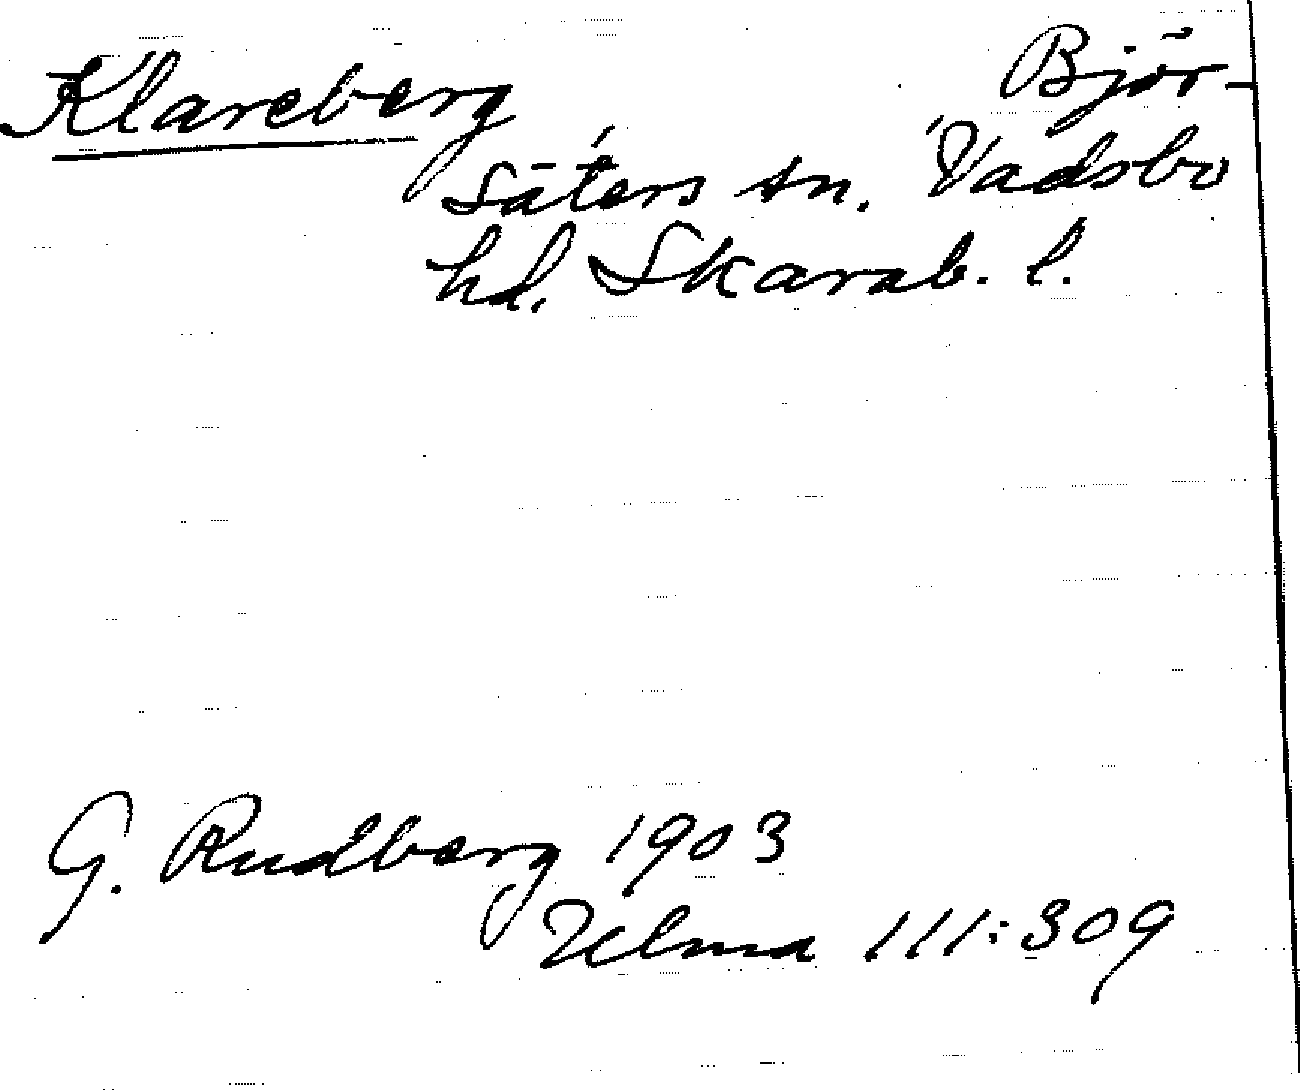 Klareberg Björ-
säters sn. Vadsbo
hd. Skarab. l.
G. Rudberg 1903
Ulma 111:309